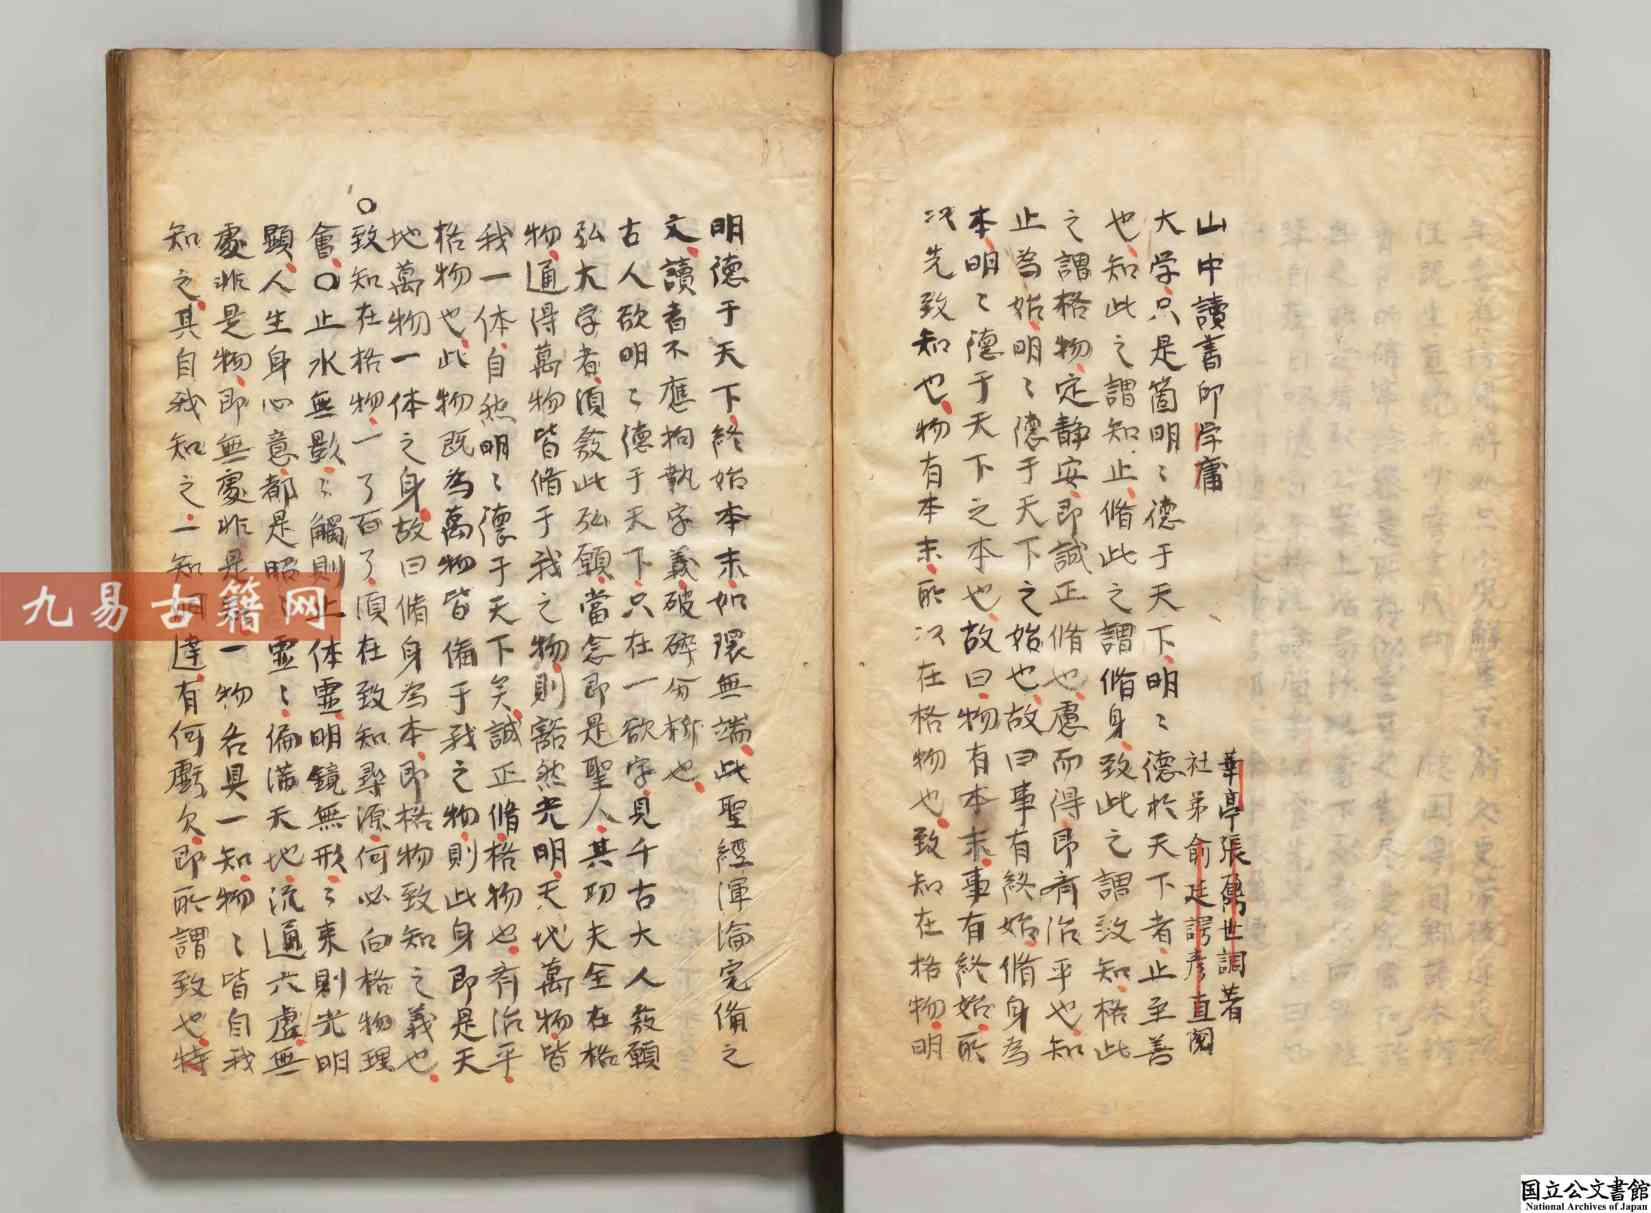 山中讀書印学庸
華亭張鼐世調著
社弟俞廷諤彥直閱
大学只是箇明〻德于天下明〻德於天下者止至善
也知此之謂知止脩此之謂脩身致此之謂致知格此
之謂格物定静安即誠正脩也慮而得即齊治平也知
止為始明〻德于天下之始也故曰事有終始脩身為
本明〻德于天下之本也故曰物有本末事有終始所
以先致知也物有本末所以在格物也致知在格物明
明德于天下終始本末如環無端此聖經渾淪完備之
文讀者不應拘執字義破碎分析也
古人欲明〻德于天下只在一欲字見千古大人發願
弘大学者須發此弘願當念即是聖人其功夫全在格
物通得萬物皆脩于我之物則豁然光明天地萬物皆
我一体自然明〻德于天下矣誠正脩格物也齊治平
格物也此物既為萬物皆備于我之物則此身即是天
地萬物一体之身故曰脩身為本即格物致知之義也
〇致知在格物一了百了須在致知尋源何必向格物理
會〇止水無影〻觸則止体靈明鏡無形〻来則光明
顯人生身心意都是昭靈〻徧滿天地流通六虛無
處非是物即無處非是一物各具一知物〻皆自我
知之其自我知之一知明達有何虧欠即所謂致也特
九易古籍网
国立公文書館
National Archives of Japan